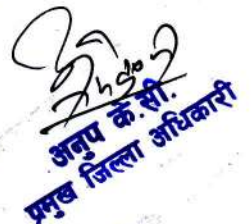 अनुप के.सी.
प्रमुख जिल्ला अधिकारी